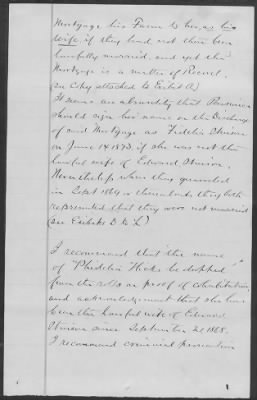 Mortgage his Farm to her, as his
wife, if they had not then been
lawfully married, and yet the
Mortgage is a matter of Record.
(see Copy attached to Exibit A)
It seems an absurdity that
should sign her name on the Discharge
of said Mortgage as Fidelia
on June 14 1873, if she was not the
lawful wife of Edward
Nevertheless when they quarreled
in Sept 1864 or thereabouts they both
represented that they were not married
(see Exibits D & L)
I recommend that "the name
of Phidelia Hicks be dropped"
from the rolls on proof of cohabitation
and acknowledgement that she has
been the lawful wife of Edward
since September 21 1868.
I recommend criminal prosecution